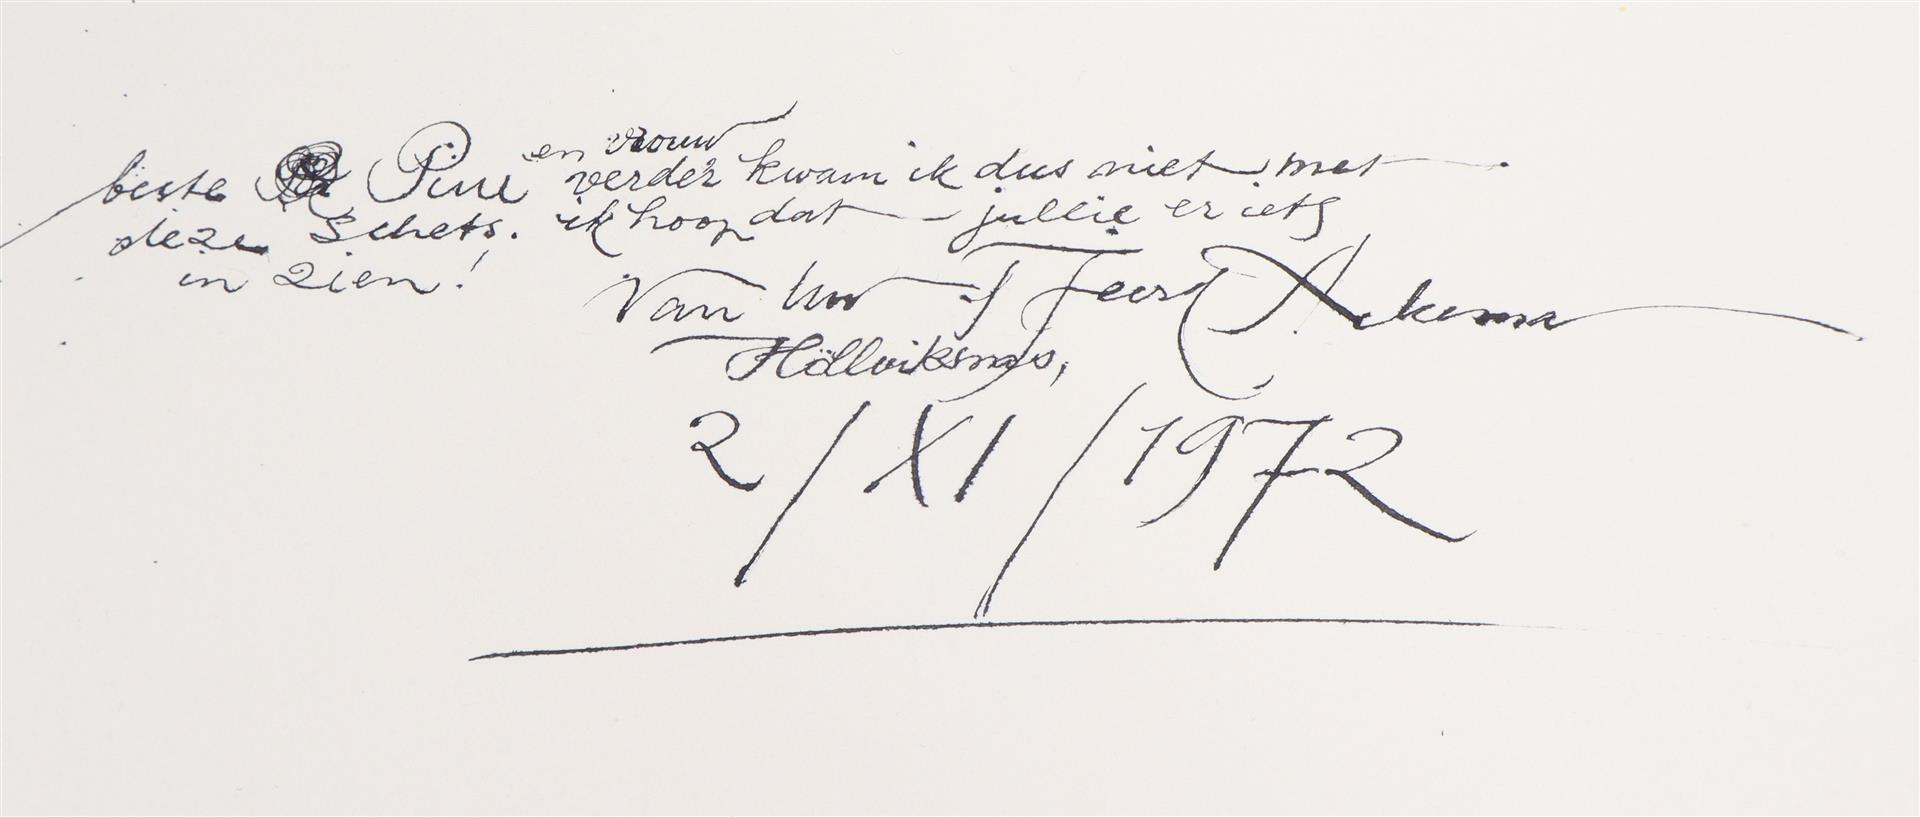 beste Pim en vrouw verder kwam ik dus niet met
deze schets. ik hoop dat jullie er iets
in zien!
Van Uw Tjeerd Ackema
Höllviksnäs,
2/XI/1972